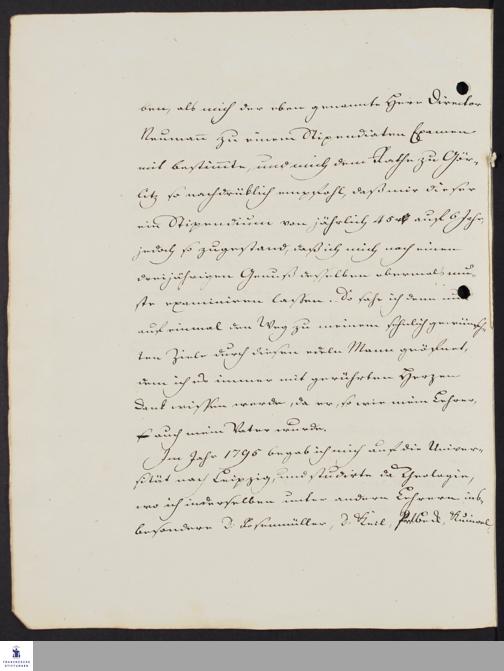 ben, als mich der eben genannte Herr Director
Neumañ zu einem Stipendiaten Examen
mit bestim̃te, und mich dem Rathe zu Gör-
litz so nachdrüklich empfohl, daß mir dieser
ein Stipendium von jährlich 45 auf 6 Jahr,
jedoch so zugestand, daß ich mich nach einem
dreijährigen Genuß desselben abermals mü-
ste examiniren lassen. So sahe ich denn
auf einmal den Weg zu meinem sehnlich gewünsch-
ten Ziele durch diesen edeln Mann geöfnet,
dem ich es immer mit gerührten Herzen
Dank wissen werde, da er, so wie mein Lehrer,
so auch mein Vater wurde.
Im Jahr 1795 begab ich mich auf die Univer-
sität nach Leipzig, und studirte da Theologie,
wo ich in derselben unter andern Lehrern ins-
besondere D. Rosenmüller, D. Keil, Beck, Kuinoel
FRANCKESCHE
STIFTUNGEN